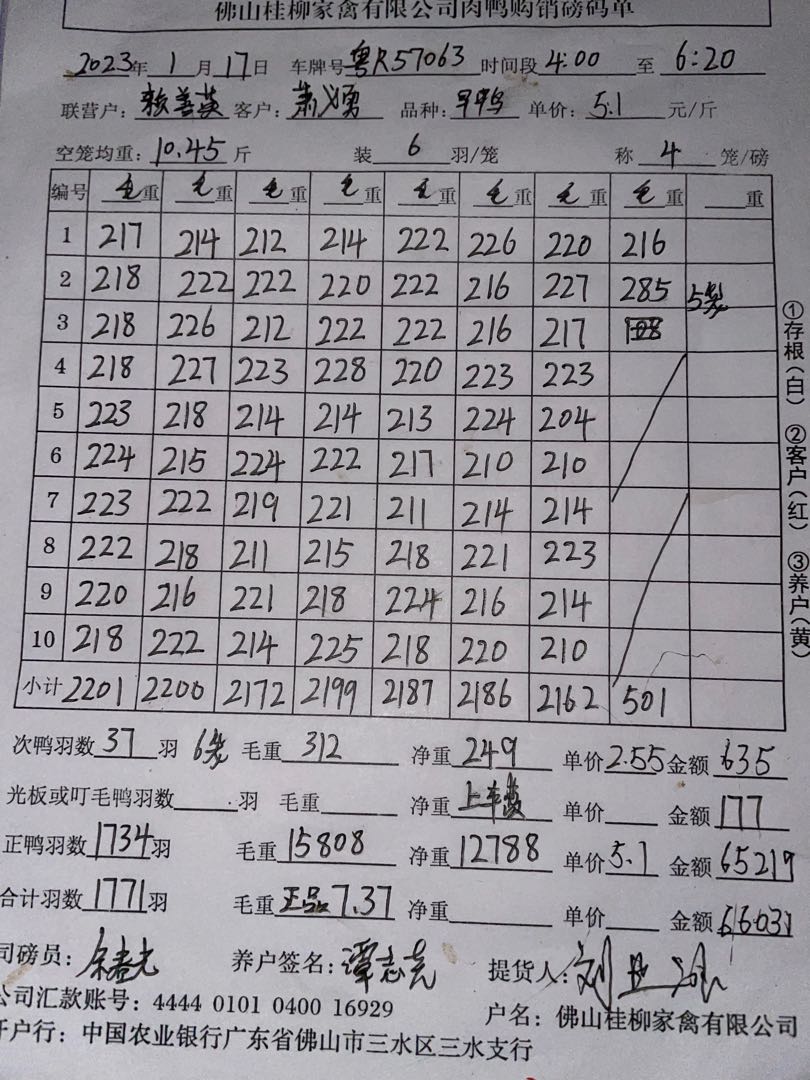 佛山桂柳家禽有限公司肉鸭购销磅码单
2023年 1 月 17 日 车牌号 粤R57063 时间段 4:00 至 6:20
联营户: 赖善英 客户: 萧义勇 品种: 单价: 5.1 元/斤
空笼均重: 10.45 斤 装 6 羽/笼 称 4 笼/磅
编号 毛重 毛重 毛重 毛重 毛重 毛重 毛重 毛重 重
1 217 214 212 214 222 226 220 216
2 218 222 222 220 222 216 227 285 5笼
3 218 226 212 222 222 216 217
4 218 227 223 228 220 223 223
5 223 218 214 214 213 224 204
6 224 215 224 222 217 210 210
7 223 222 219 221 211 214 214
8 222 218 211 215 218 221 223
9 220 216 221 218 224 216 214
10 218 222 214 225 218 220 210
小计 2201 2200 2172 2199 2187 2186 2162 501
次鸭羽数 37 羽 6笼 毛重 312 净重 249 单价 2.55 金额 635
光板或叮毛鸭羽数 羽 毛重 净重 上车费 单价 金额 177
正鸭羽数 1734 羽 毛重 15808 净重 12788 单价 5.1 金额 65219
合计羽数 1771 羽 毛重 正品7.37 净重 单价 金额 66031
司磅员: 养户签名: 谭志亮 提货人:
公司汇款账号: 4444 0101 0400 16929 户名: 佛山桂柳家禽有限公司
开户行: 中国农业银行广东省佛山市三水区三水支行
①存根(白) ②客户(红) ③养户(黄)